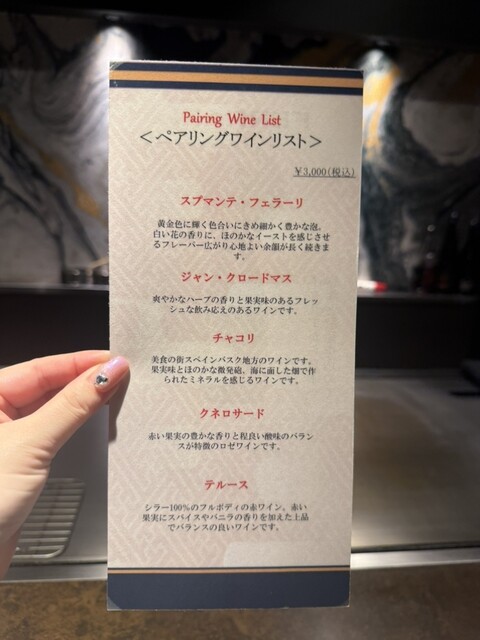 Pairing Wine List
＜ペアリングワインリスト＞
￥3,000(税込)
スプマンテ・フェラーリ
黄金色に輝く色合いにきめ細かく豊かな泡。
白い花の香りに、ほのかなイーストを感じさせ
るフレーバー広がり心地よい余韻が長く続きま
す。
ジャン・クロードマス
爽やかなハーブの香りと果実味のあるフレッ
シュな飲み応えのあるワインです。
チャコリ
美食の街スペインバスク地方のワインです。
果実味とほのかな微発砲、海に面した畑で作
られたミネラルを感じるワインです。
クネロサード
赤い果実の豊かな香りと程良い酸味のバラン
スが特徴のロゼワインです。
テルース
シラー100%のフルボディの赤ワイン。赤い
果実にスパイスやバニラの香りを加えた上品
でバランスの良いワインです。